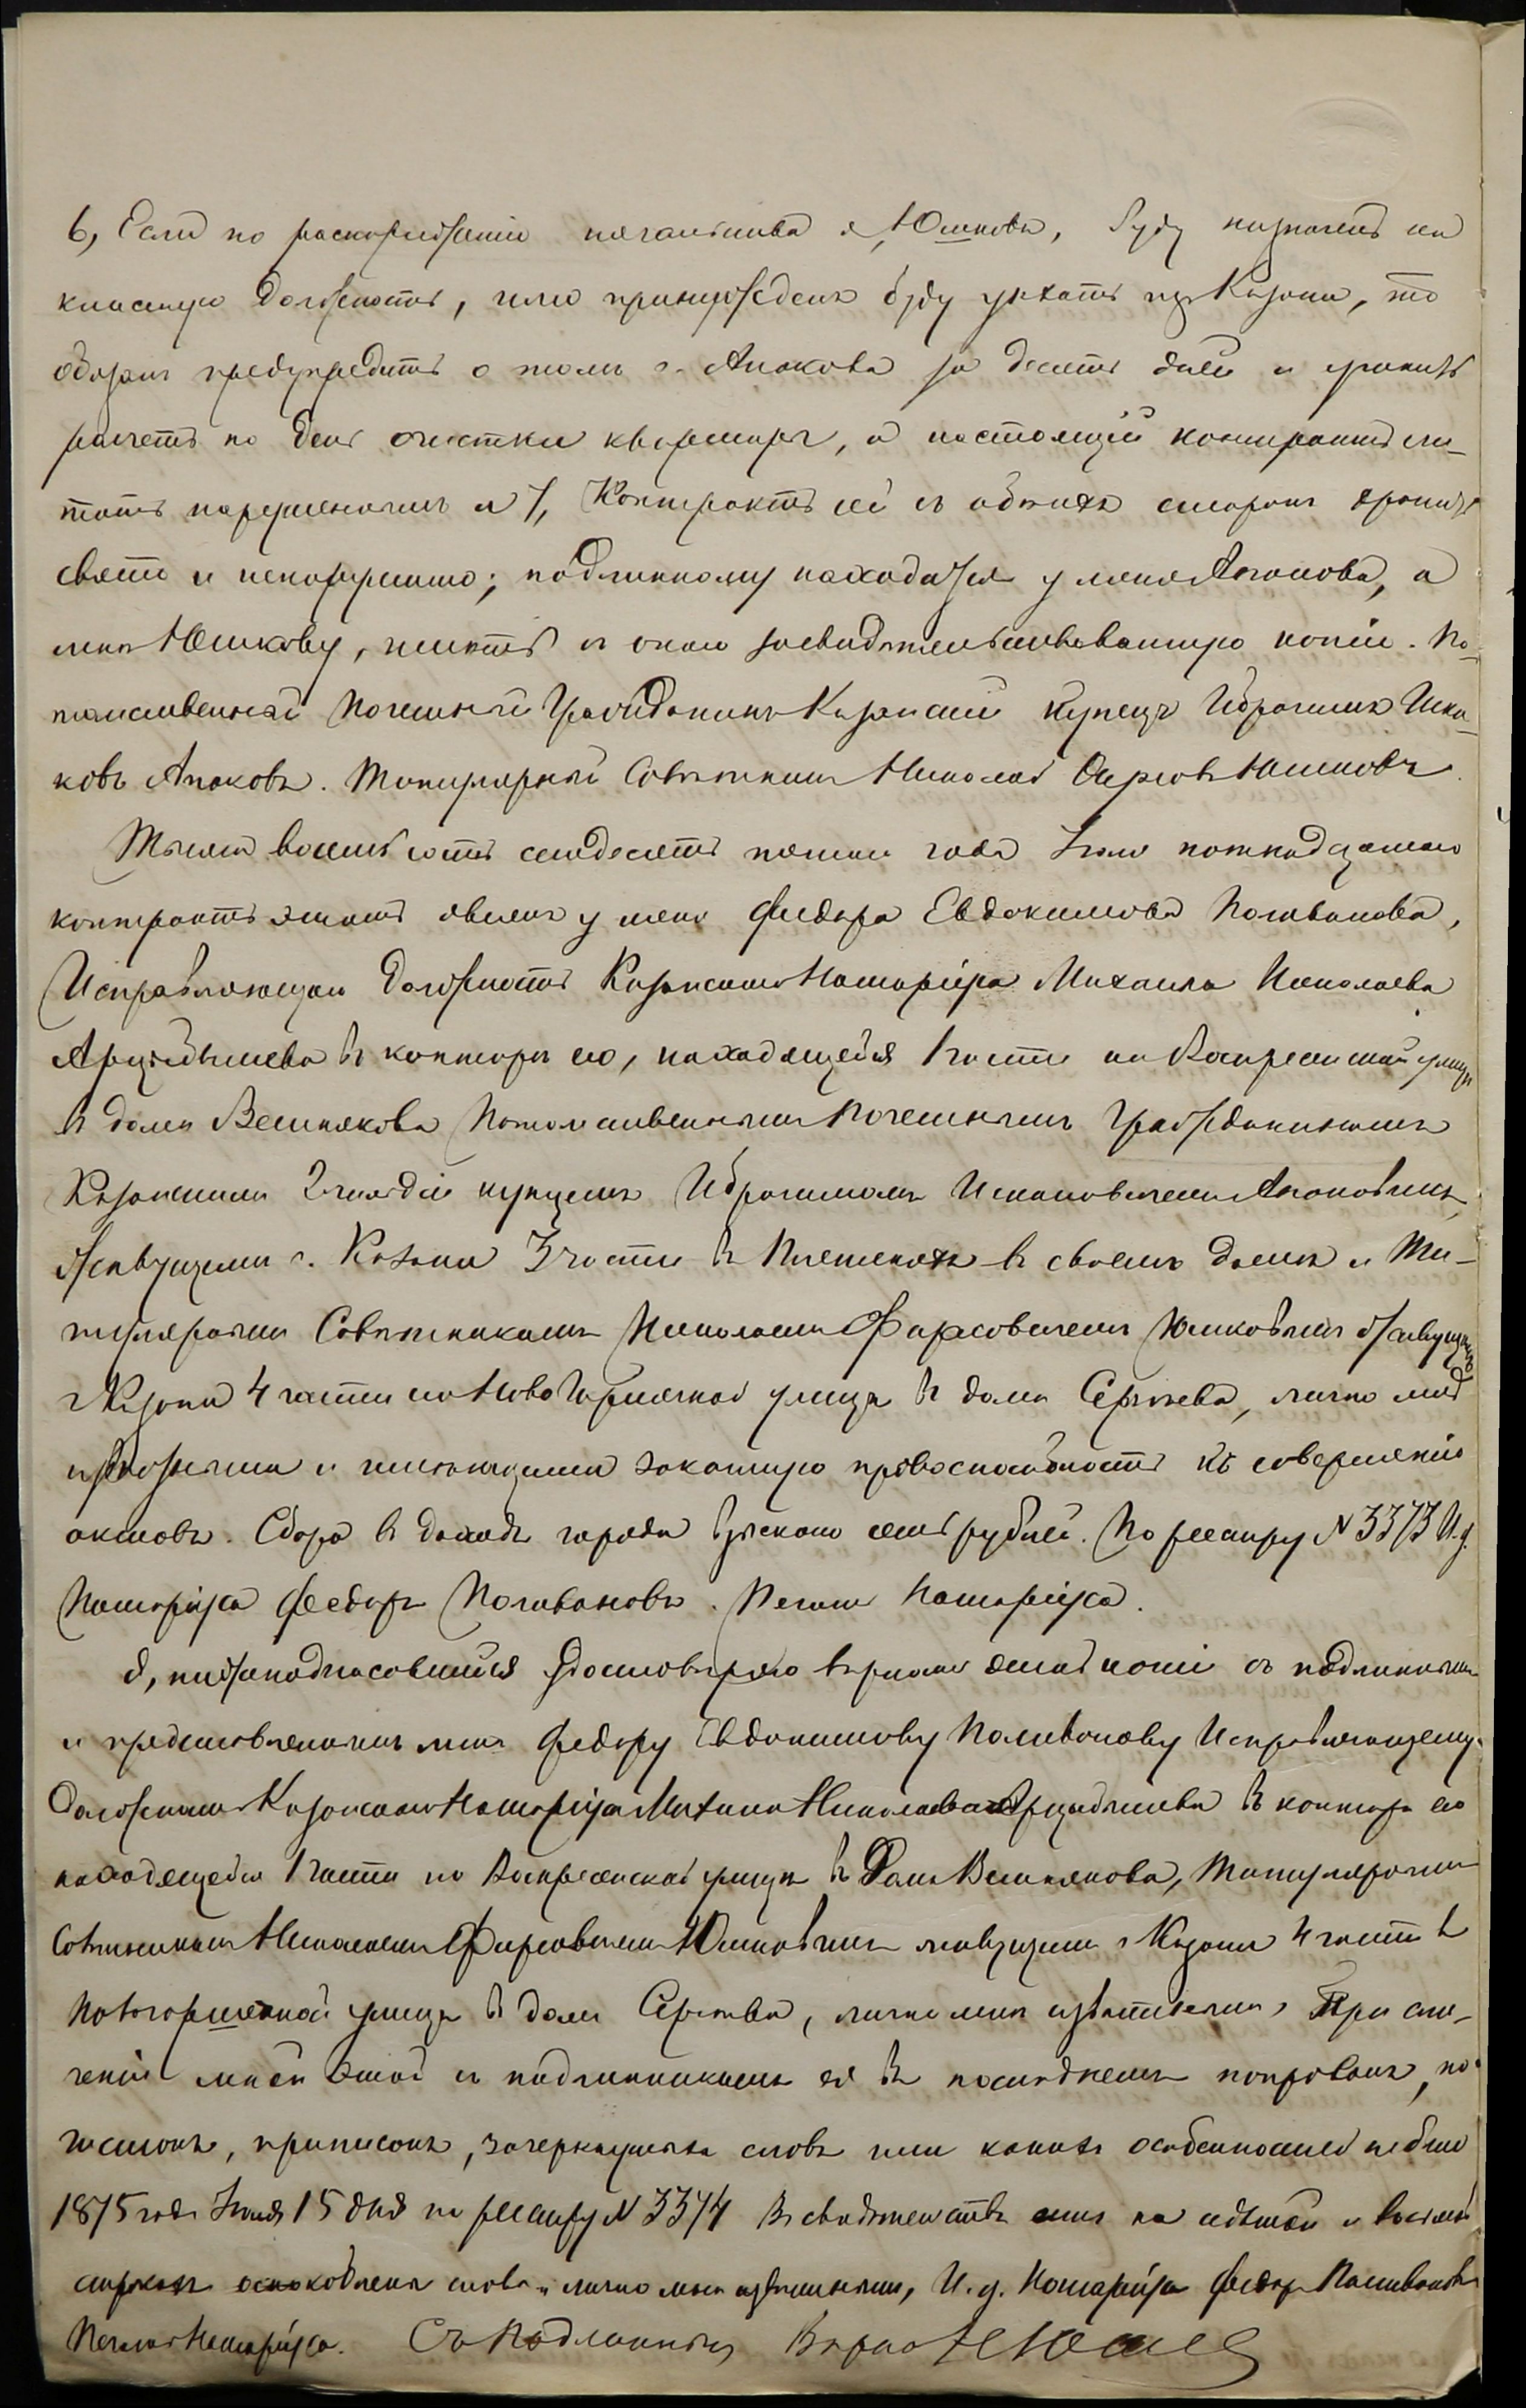 6, Если по распоряженію начальства я, Юшковъ, буду назначенъ на
классную должность, или принужденъ буду уѣхать изъ Казани, то
обязанъ предупредить о томъ г. Апакова за десять дней и учинить
расчетъ по день очистки квартиры, а настоящій контрактъ счи-
тать нарушеннымъ и 7, Контрактъ сей съ обѣихъ сторонъ хранить
свято и ненарушимо; подлинному находиться у меня Апакова, а
мнѣ Юшкову, имѣть съ онаго засвидѣтельствованную копію. По-
томственный Почетный Гражданинъ Казанскій купецъ Ибрагимъ Иска-
ковъ Апаковъ. Титулярный Совѣтникъ Николай Фирсовъ Юшковъ.
Тысяча восемьсотъ семдесятъ пятаго года Іюля пятнадцатаго
контрактъ этотъ явленъ у меня Федора Евдокимова Поливанова,
Исправляющаго должность Казанскаго Нотаріуса Михаила Николаева
Арцыбышева въ конторѣ его, находящейся 1 части на Воскресенской улицѣ
въ домѣ Вешнякова Потомственнымъ Почетнымъ Гражданиномъ
Казанскимъ 2 гильдіи купцемъ Ибрагимомъ Искаковичемъ Апаковымъ,
живущимъ г. Казани 3 части въ Плетеняхъ въ своемъ домѣ и Ти-
тулярнымъ Совѣтникомъ Николаемъ Фирсовичемъ Юшковымъ живущимъ
г. Казани 4 части на Ново Горшечной улицѣ въ домѣ Сергѣева, лично мнѣ
извѣстными и имѣющими законную правоспособность къ совершенію
актовъ. Сбора въ доходъ города взыскано семь рублей. По реестру № 3373 И. д.
Нотаріуса Федоръ Поливановъ. Печать Нотаріуса.
Я, нижеподписавшійся удостовѣряю вѣрность этой копіи съ подлинникомъ
и представленнымъ мнѣ Федору Евдокимову Поливанову Исправляющему
должность Казанскаго Нотаріуса Михаила Николаева Арцыбышева въ конторѣ его
находящейся 1 части по Воскресенской улицѣ въ домѣ Вешнякова, Титулярнымъ
Совѣтникомъ Николаемъ Фирсовичемъ Юшковымъ живущимъ г. Казани 4 части въ
Новогоршечной улицѣ въ домѣ Сергѣева, лично мнѣ извѣстнымъ, При сли-
ченіи мной этой съ подлинникомъ ея въ послѣднемъ поправокъ, по-
чистокъ, приписокъ, зачеркнутыхъ словъ или какихъ особенностей небыло
1875 года Іюля 15 дня по реестру № 3374 Въ свидѣтельствѣ на седьмой и восьмой
строкахъ оскоблены слова „лично мнѣ извѣстными, И. д. Нотаріуса Федоръ Поливановъ
Печать Нотаріуса. Съ Подлиннымъ Вѣрно Н Юшк